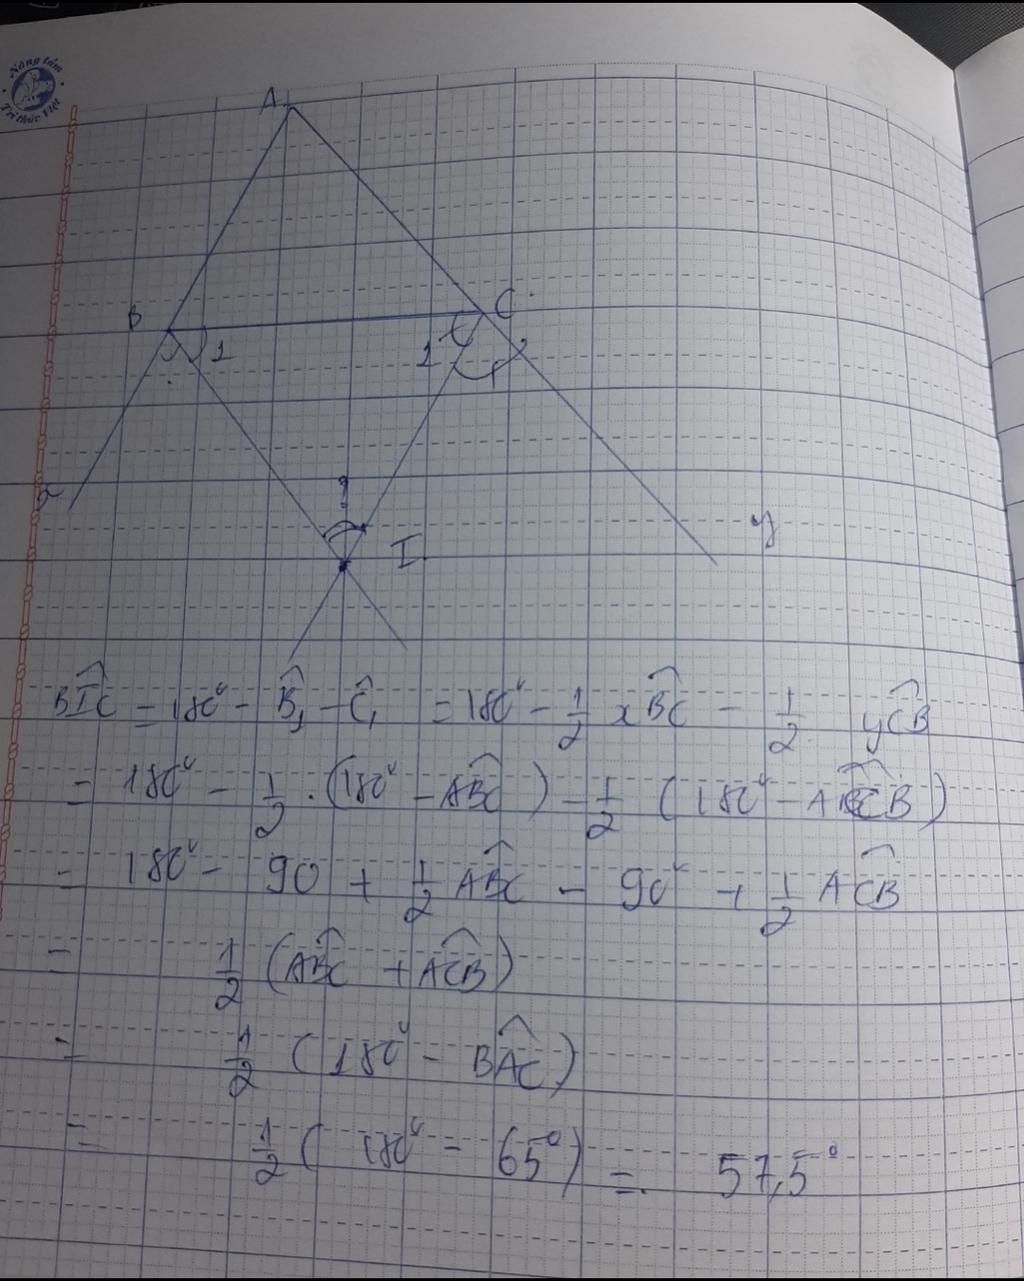 Nâng tầm
Trí thức Việt
A
B
C
1
1
x
?
I
y
BIC^ = 180° - B̂₁ - Ĉ₁ = 180° - 1/2 xBC^ - 1/2 yCB^
= 180° - 1/2 . (180° - ABC^) - 1/2 (180° - ACB^)
= 180° - 90 + 1/2 ABC^ - 90° + 1/2 ACB^
= 1/2 (ABC^ + ACB^)
= 1/2 (180° - BAC^)
= 1/2 (180° - 65°) = 57,5°